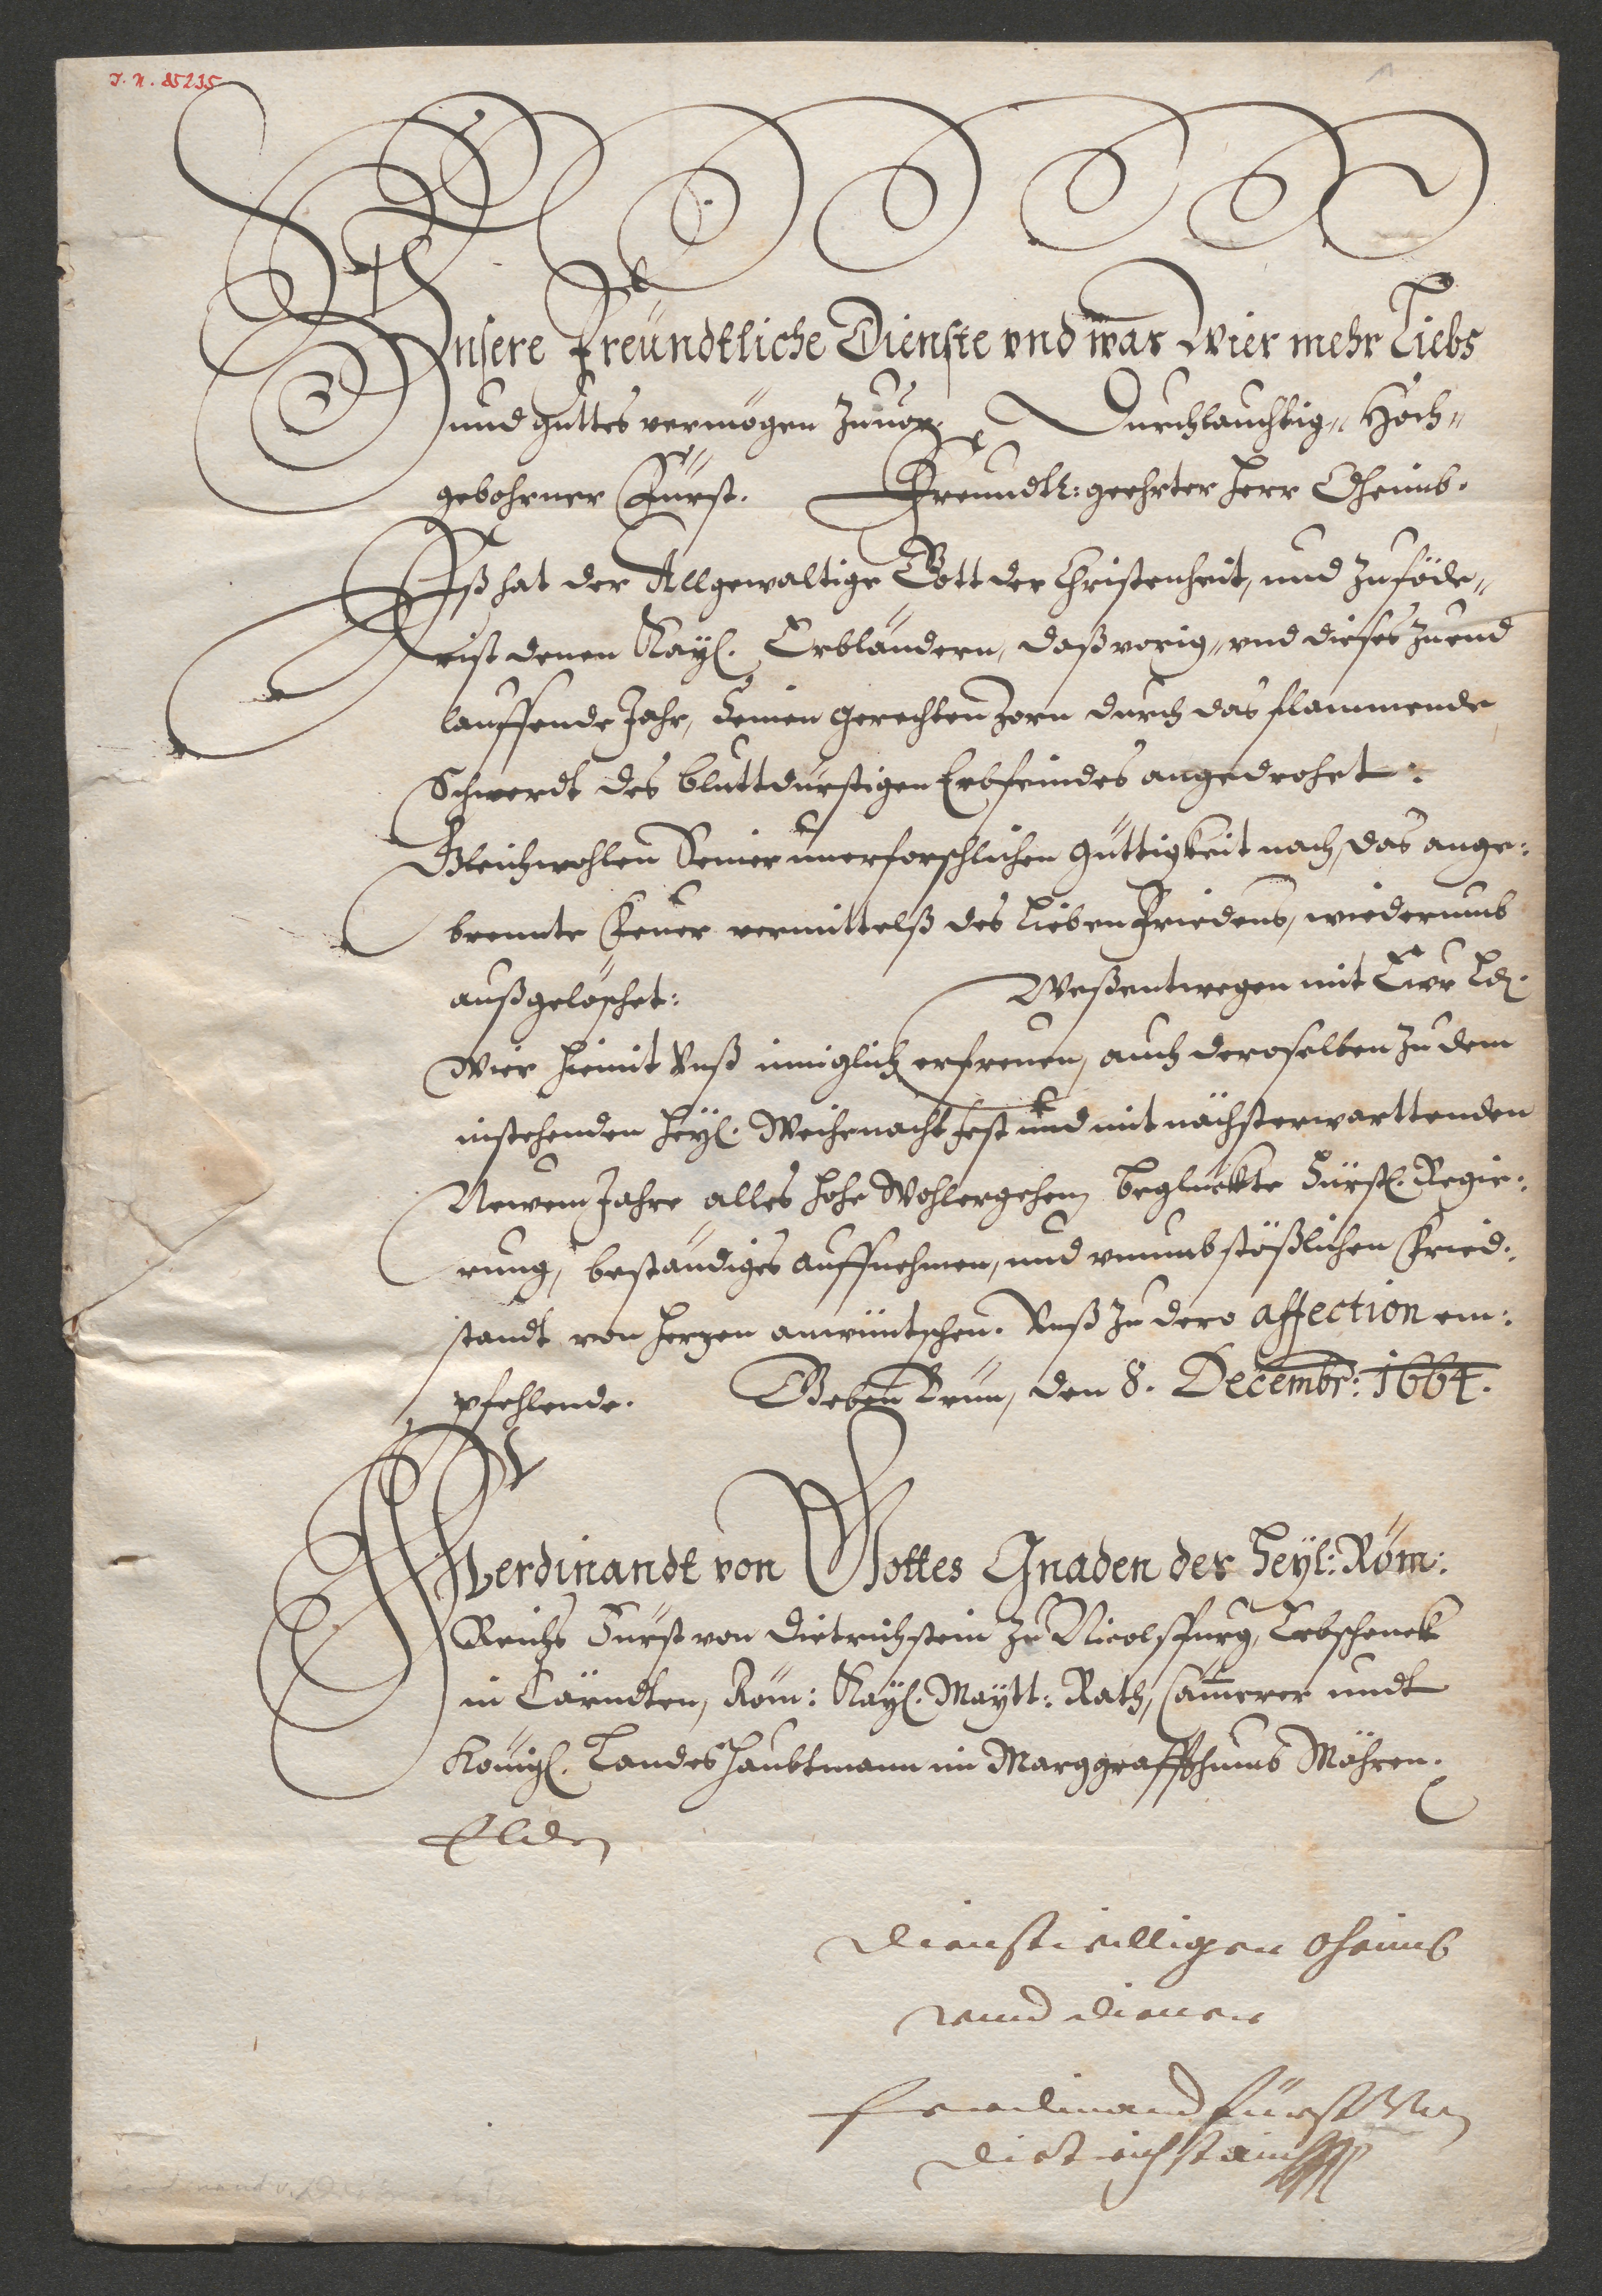 J. N. 85235
Unsere Freündtliche Dienste vnd was Wier mehr Liebs
und guttes vermögen zuuor. Durchlauchtig- Hoch-
gebohrner Fürst. Freundtl: geehrter Herr Oheimb.
Eß hat der Allgewaltige Gott der Christenheit, und zuföde-
rist denen Kayl. Erbländern, daß vorig- vnd dieses zu end
lauffende Jahr, Seinen gerechten Zorn durch das flammende
Schwerdt des bluttdürstigen Erbfeindes angedrohet:
Gleichwohlen Seiner unerforschlichen Güttigkeit nach, das ange:
brennte Feuer vermittelß des Lieben Friedens, wiederumb
außgelöschet: Weßentwegen mit Ewr Ld.
Wier hiemit Unß inniglich erfreuen, auch deroselben zu dem
instehenden Heyl. Weihenacht fest und mit nächsterwarttenden
Newem Jahre alles hohe Wohlergehen, beglückte Fürstl. Regie:
rung, beständiges auffnehmen, und vnumbstößlichen Fried:
standt von Herzen anwüntschen. Unß zu dero affection em:
pfehlende. Geben Brün, den 8. Decembr: 1664.
Ferdinandt von Gottes Gnaden des Heyl: Röm:
Reichs Fürst von Dietrichstein zu Nicolspurg, Erbschenck
in Cärndten, Röm: Kayl. Maytt: Rath, Cammerer undt
Königl. Landes Haubtmann im Marggraffthumb Mähren.
Dienstwilliger Oheimb
vnd diener
Ferdinand Fürst von
Dietrichstain